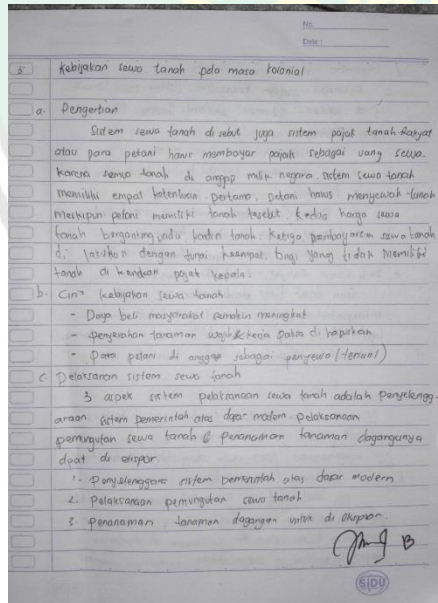 No.
Date :
5 Kebijakan sewa tanah pada masa kolonial
a. Pengertian
Sistem sewa tanah di sebut juga sistem pajak tanah. Rakyat
atau para petani harus membayar pajak sebagai uang sewa.
Karena semua tanah di anggap milik negara. sistem sewa tanah
memiliki empat ketentuan pertama, petani harus menyewah tanah
meskipun petani memiliki tanah tesebut. Kedua harga sewa
tanah bergantung tanah. Ketiga pembayaran sewa tanah
di lakukan dengan tunai keempat, bagi yang tidak memiliki
tanah di kenakan pajak kepala.
b. Ciri² kebijakan sewa tanah
- Daya beli masyarakat semakin meningkat
- penyerahan tanaman wajib & kerja paksa di hapuskan
- Para petani di anggap sebagai penyewa (tenant)
c. Pelaksanaan sistem sewa tanah
3 aspek sistem pelaksanaan sewa tanah adalah penyelengg-
araan sistem pemerintah atas dasar modern. pelaksanaan
pemungutan sewa tanah & penanaman tanaman dagangnya
dpat di ekspor.
1. Penyelenggara sistem pemerintah atas dasar modern
2. Pelaksanaan pemungutan sewa tanah
3. penanaman tanaman dagangan untuk di ekspor.
B
SIDU